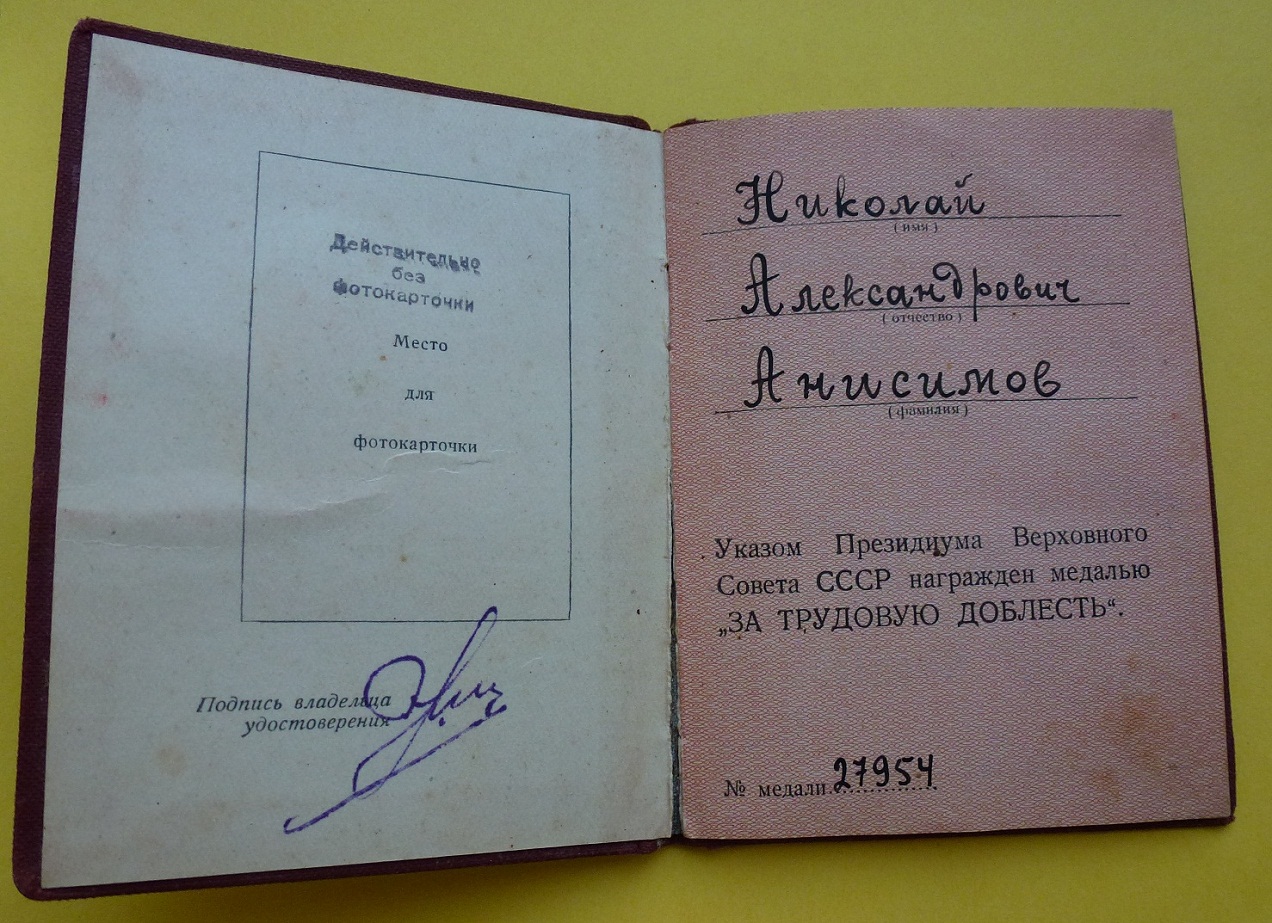 Действительно
без
фотокарточки
Место
для
фотокарточки
Подпись владельца
удостоверения
Николай
(имя)
Александрович
(отчество)
Анисимов
(фамилия)
Указом Президиума Верховного
Совета СССР награжден медалью
„ЗА ТРУДОВУЮ ДОБЛЕСТЬ“.
№ медали 27954